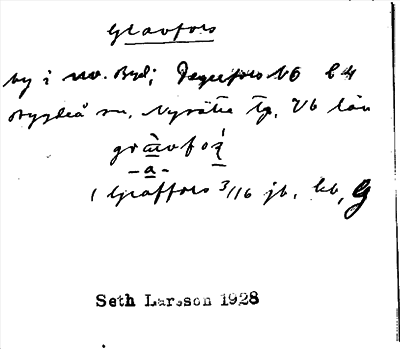 Gravfors
by i nv. Byd; Degerfors NO bl
Bygdeå sn, Nysätra tg, Vb län
gravfoṣ
- a -
1 Graffors 3/16 jb, kb, G
Seth Larsson 1928